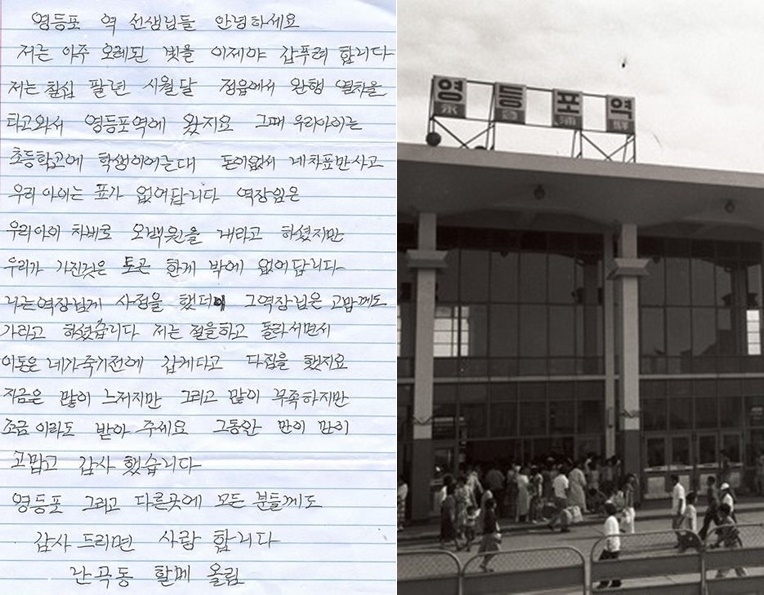 영등포 역 선생님들 안녕하세요
저는 아주 오레된 빚을 이제야 갑푸려 합니다
저는 칠십 팔년 시월달 정읍에서 완행 열차을
타고와서 영등포역에 왔지요 그때 우리아이는
초등학고에 학생이어는대 돈이없서 네차표만사고
우리 아이는 표가 없어답니다 역장임은
우리아이 차비로 오백원을 내라고 하셨지만
우리가 가진것은 토큰 한게 밖에 없어답니다
나는역장님게 사정을 했더니 그역장님은 고맙께도
가라고 하셨습니다 저는 절을하고 돌라서면서
이돈은 네가죽기전에 갑게다고 다짐을 했지요
지금은 많이 느저지만 그리고 많이 부족하지만
조금 이라도 받아 주세요 그동안 만이 만이
고맙고 감사 했습니다
영등포 그리고 다른곳에 모든 분들께도
감사 드리면 사랑 합니다
난곡동 할메 올림
영등포역
永登浦驛